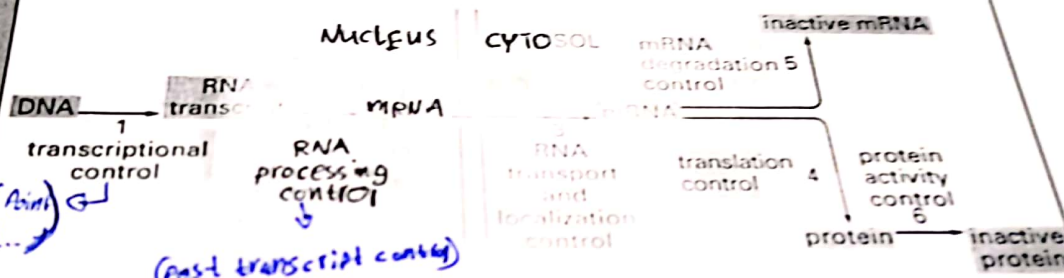 NUCLEUS CYTOSOL
inactive mRNA
mRNA
degradation 5
control
DNA
RNA
mRNA
mRNA
1
transcriptional
control
RNA
processing
control
3
RNA
transport
and
localization
control
translation
control 4
protein
activity
control
6
protein
inactive
protein